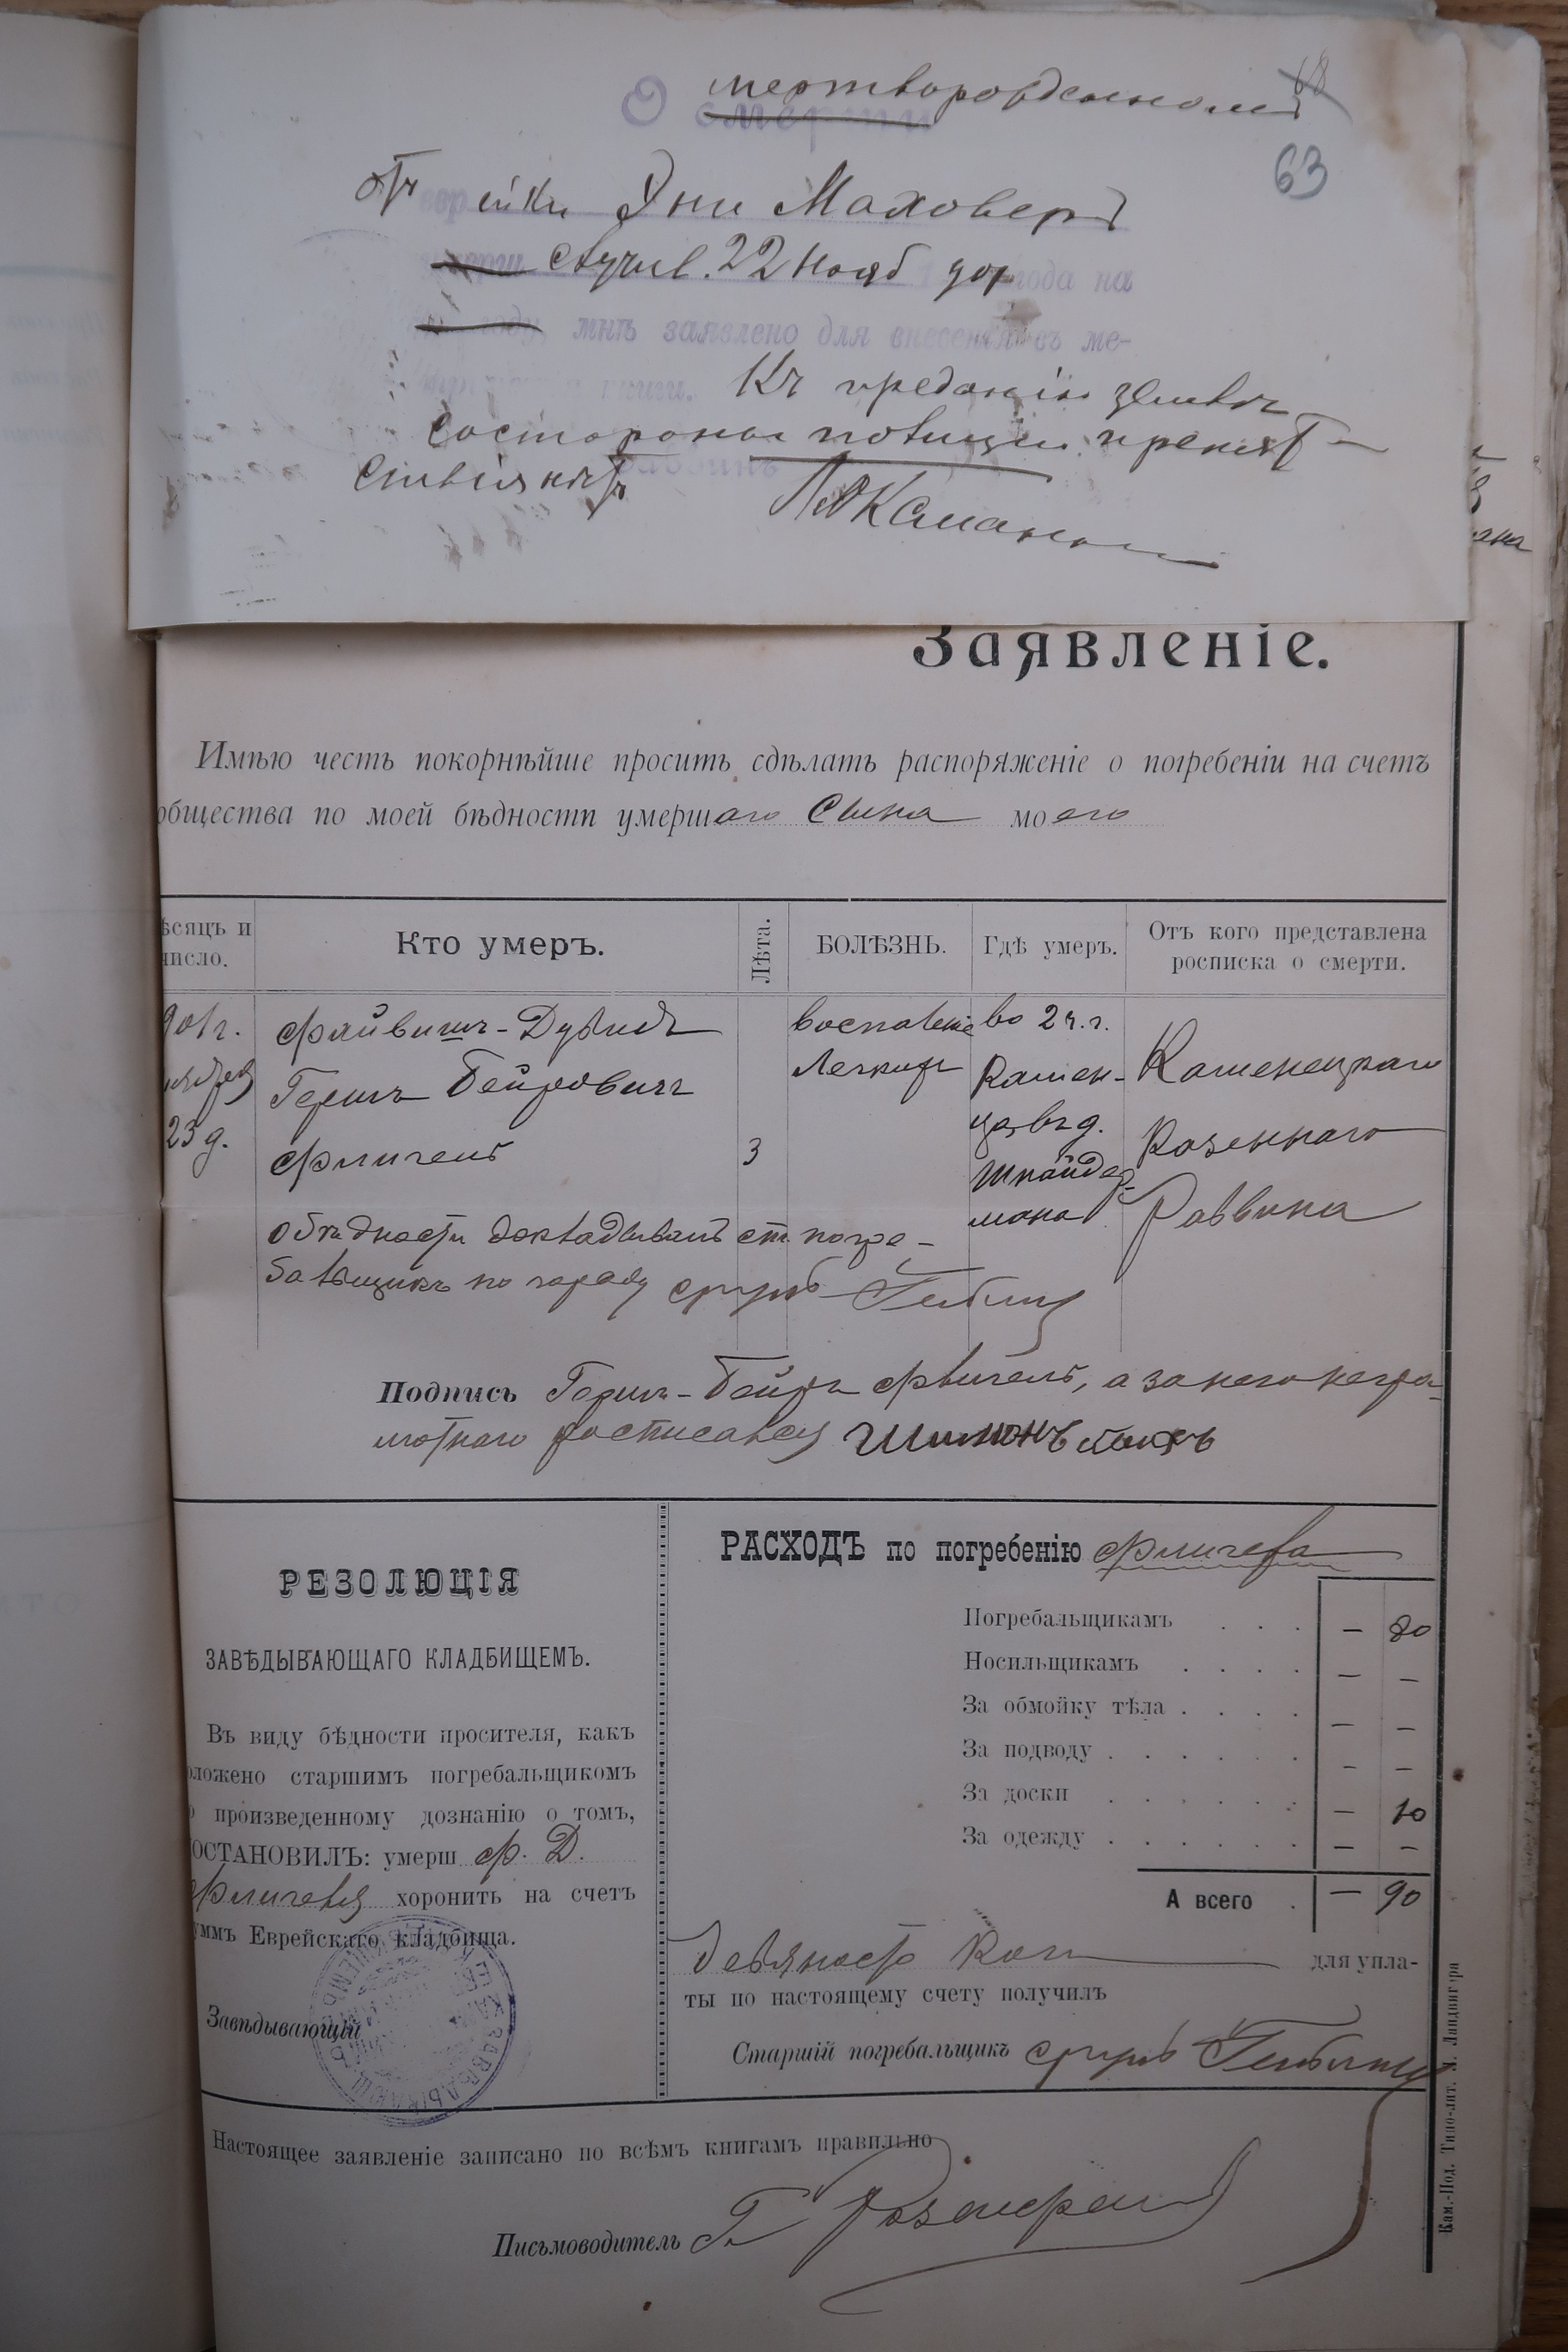 68
О смерти мертворожденномъ
63
Отъ еврейки Эни Маховеръ
умерш случив. 22 Нояб 901 года на
году, мнѣ заявлено для внесенія въ ме-
книги. Къ преданію землѣ
состороны полиціи препят-
ствія нѣтъ
раввинъ
Заявленіе.
Имѣю честь покорнѣйше просить сдѣлать распоряженіе о погребеніи на счетъ
общества по моей бѣдности умершаго Сына моего
ѣсяцъ и число.
Кто умеръ.
Лѣта.
БОЛѢЗНЬ.
Гдѣ умеръ.
Отъ кого представлена росписка о смерти.
901 г.
ноября
23 д.
Файвишъ-Дувидъ
Гершъ Бейровичъ
Флигель
3
воспаленіе
легкихъ
во 2 ч. г.
Камен-
ца, въ д.
Шнайдер-
мана
Каменецкаго
Казеннаго
Раввина
О бѣдности докладываетъ ст. погре-
бальщикъ по городу
Подпись Гершъ-Бейръ Флигель, а за него негра-
мотнаго росписался Шимонъ
РЕЗОЛЮЦІЯ
ЗАВѢДЫВАЮЩАГО КЛАДБИЩЕМЪ.
Въ виду бѣдности просителя, какъ
оложено старшимъ погребальщикомъ
о произведенному дознанію о томъ,
ОСТАНОВИЛЪ: умерш Ф. Д.
Флигеля хоронить на счетъ
уммъ Еврейскаго кладбища.
Завѣдывающій
РАСХОДЪ по погребенію Флигеля
Погребальщикамъ . . . — 80
Носильщикамъ . . . . — —
За обмойку тѣла . . . . — —
За подводу . . . . . . — —
За доски . . . . . . — 10
За одежду . . . . . . — —
А всего . — 90
девяносто коп для упла-
ты по настоящему счету получилъ
Старшій погребальщикъ
Настоящее заявленіе записано по всѣмъ книгамъ правильно
Письмоводитель Г. Розенфельдъ
Кам.-Под. Типо-лит. М. Ландвигера